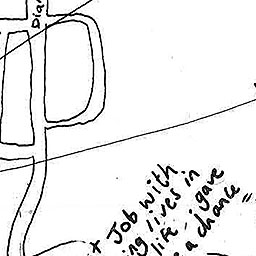 Diar
Job with
ing lives in
life - i gave
a chance"